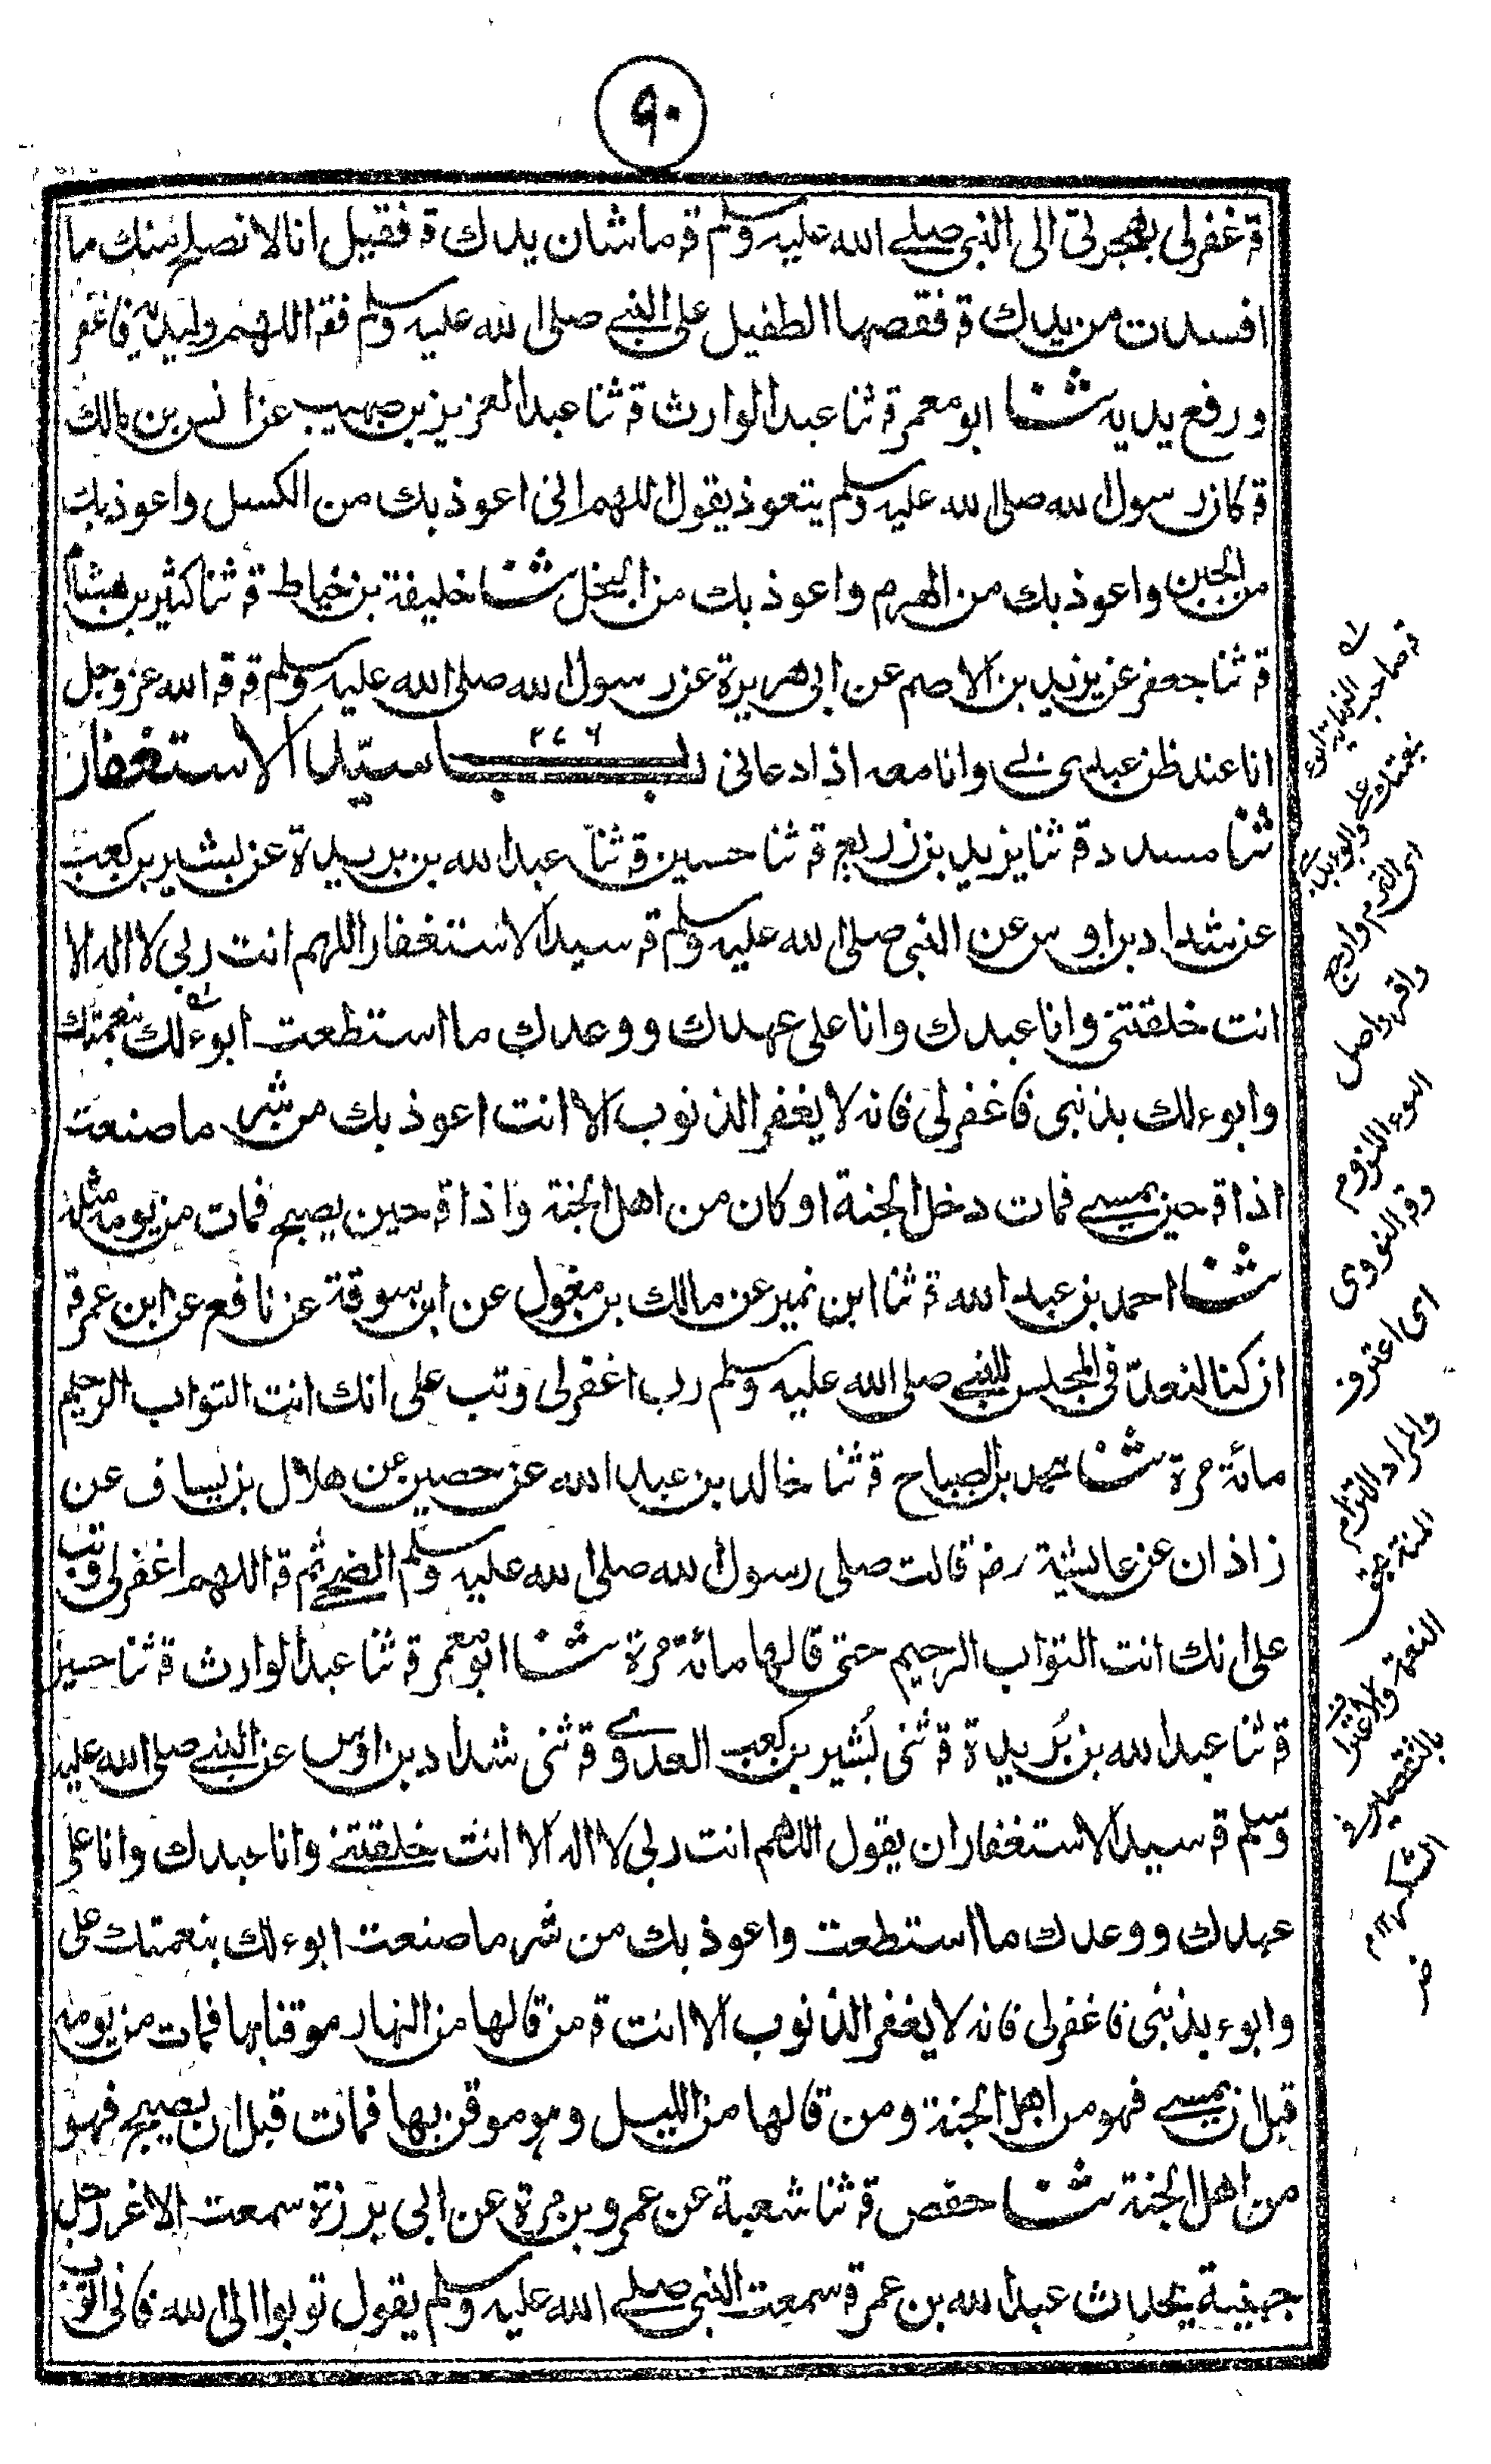 ٩٠
قـ غفرلی بهجرتی الی النبی صلی الله علیه وسلم قـ ما شان یدك قـ فقیل انا لا نصلح منك ما
افسدت من یدك قـ فقصها الطفیل علی النبی صلی الله علیه وسلم فقـ اللهم ولیدیه فاغفر
ورفع یدیه ثنا ابو معمر قـ ثنا عبد الوارث قـ ثنا عبد العزیز بن صهیب عن انس بن مالك
قـ كان رسول الله صلی الله علیه وسلم یتعوذ یقول اللهم انی اعوذ بك من الكسل واعوذ بك
من الجبن واعوذ بك من الهرم واعوذ بك من البخل ثنا خلیفة بن خیاط قـ ثنا كثیر بن هشام
قـ ثنا جعفر عن یزید بن الاصم عن ابی هریرة عن رسول الله صلی الله علیه وسلم قـ قـ الله عزوجل
انا عند ظن عبدی بی وانا معه اذا دعانی باب ٢٧٦ سیّد الاستغفار
ثنا مسدد قـ ثنا یزید بن زریع قـ ثنا حسین قـ ثنا عبد الله بن بریدة عن بشیر بن كعب
عن شداد بن اوس عن النبی صلی الله علیه وسلم قـ سید الاستغفار اللهم انت ربی لا اله الا
انت خلقتنی وانا عبدك وانا علی عهدك ووعدك ما استطعت ابوء لك بنعمتك
وابوء لك بذنبی فاغفرلی فانه لا یغفر الذنوب الا انت اعوذ بك من شر ما صنعت
اذا قـ حین یمسی فمات دخل الجنة او كان من اهل الجنة واذا قـ حین یصبح فمات من یومه مثله
ثنا احمد بن عبد الله قـ ثنا ابن نمیر عن مالك بن مغول عن ابن سوقة عن نافع عن ابن عمر قـ
ان كنا لنعدّ فی المجلس للنبی صلی الله علیه وسلم رب اغفرلی وتب علی انك انت التواب الرحیم
مائة مرة ثنا محمد بن الصباح قـ ثنا خالد بن عبد الله عن حصین عن هلال بن یساف عن
زاذان عن عایشة رضـ قالت صلی رسول الله صلی الله علیه وسلم الضحی ثم قـ اللهم اغفرلی وتب
علی انك انت التواب الرحیم حتی قالها مائة مرة ثنا ابو معمر قـ ثنا عبد الوارث قـ ثنا حسین
قـ ثنا عبد الله بن بُریدة قـ ثنی بُشیر بن كعب العدوی قـ ثنی شداد بن اوس عن النبی صلی الله علیه
وسلم قـ سید الاستغفار ان یقول اللهم انت ربی لا اله الا انت خلقتنی وانا عبدك وانا علی
عهدك ووعدك ما استطعت واعوذ بك من شر ما صنعت ابوء لك بنعمتك علی
وابوء بذنبی فاغفرلی فانه لا یغفر الذنوب الا انت قـ من قالها من النهار موقنا بها فمات من یومه
قبل ان یمسی فهو من اهل الجنة ومن قالها من اللیل وهو موقن بها فمات قبل ان یصبح فهو
من اهل الجنة ثنا حفص قـ ثنا شعبة عن عمرو بن مرة عن ابی بردة سمعت الاغر رجل
جهینة یحدث عبد الله بن عمر قـ سمعت النبی صلی الله علیه وسلم یقول توبوا الی الله فانی اتوب
قـ صاحب النهایة ابوء
بنعمتك علی وابوء بذنبی
ای التزم وارجع
واقر واصل
البوء اللزوم
وقـ النووی
ای اعترف
والمراد التزام
المنة بحق
النعمة والاعتراف
بالتقصیر فی
الشكر ١٢